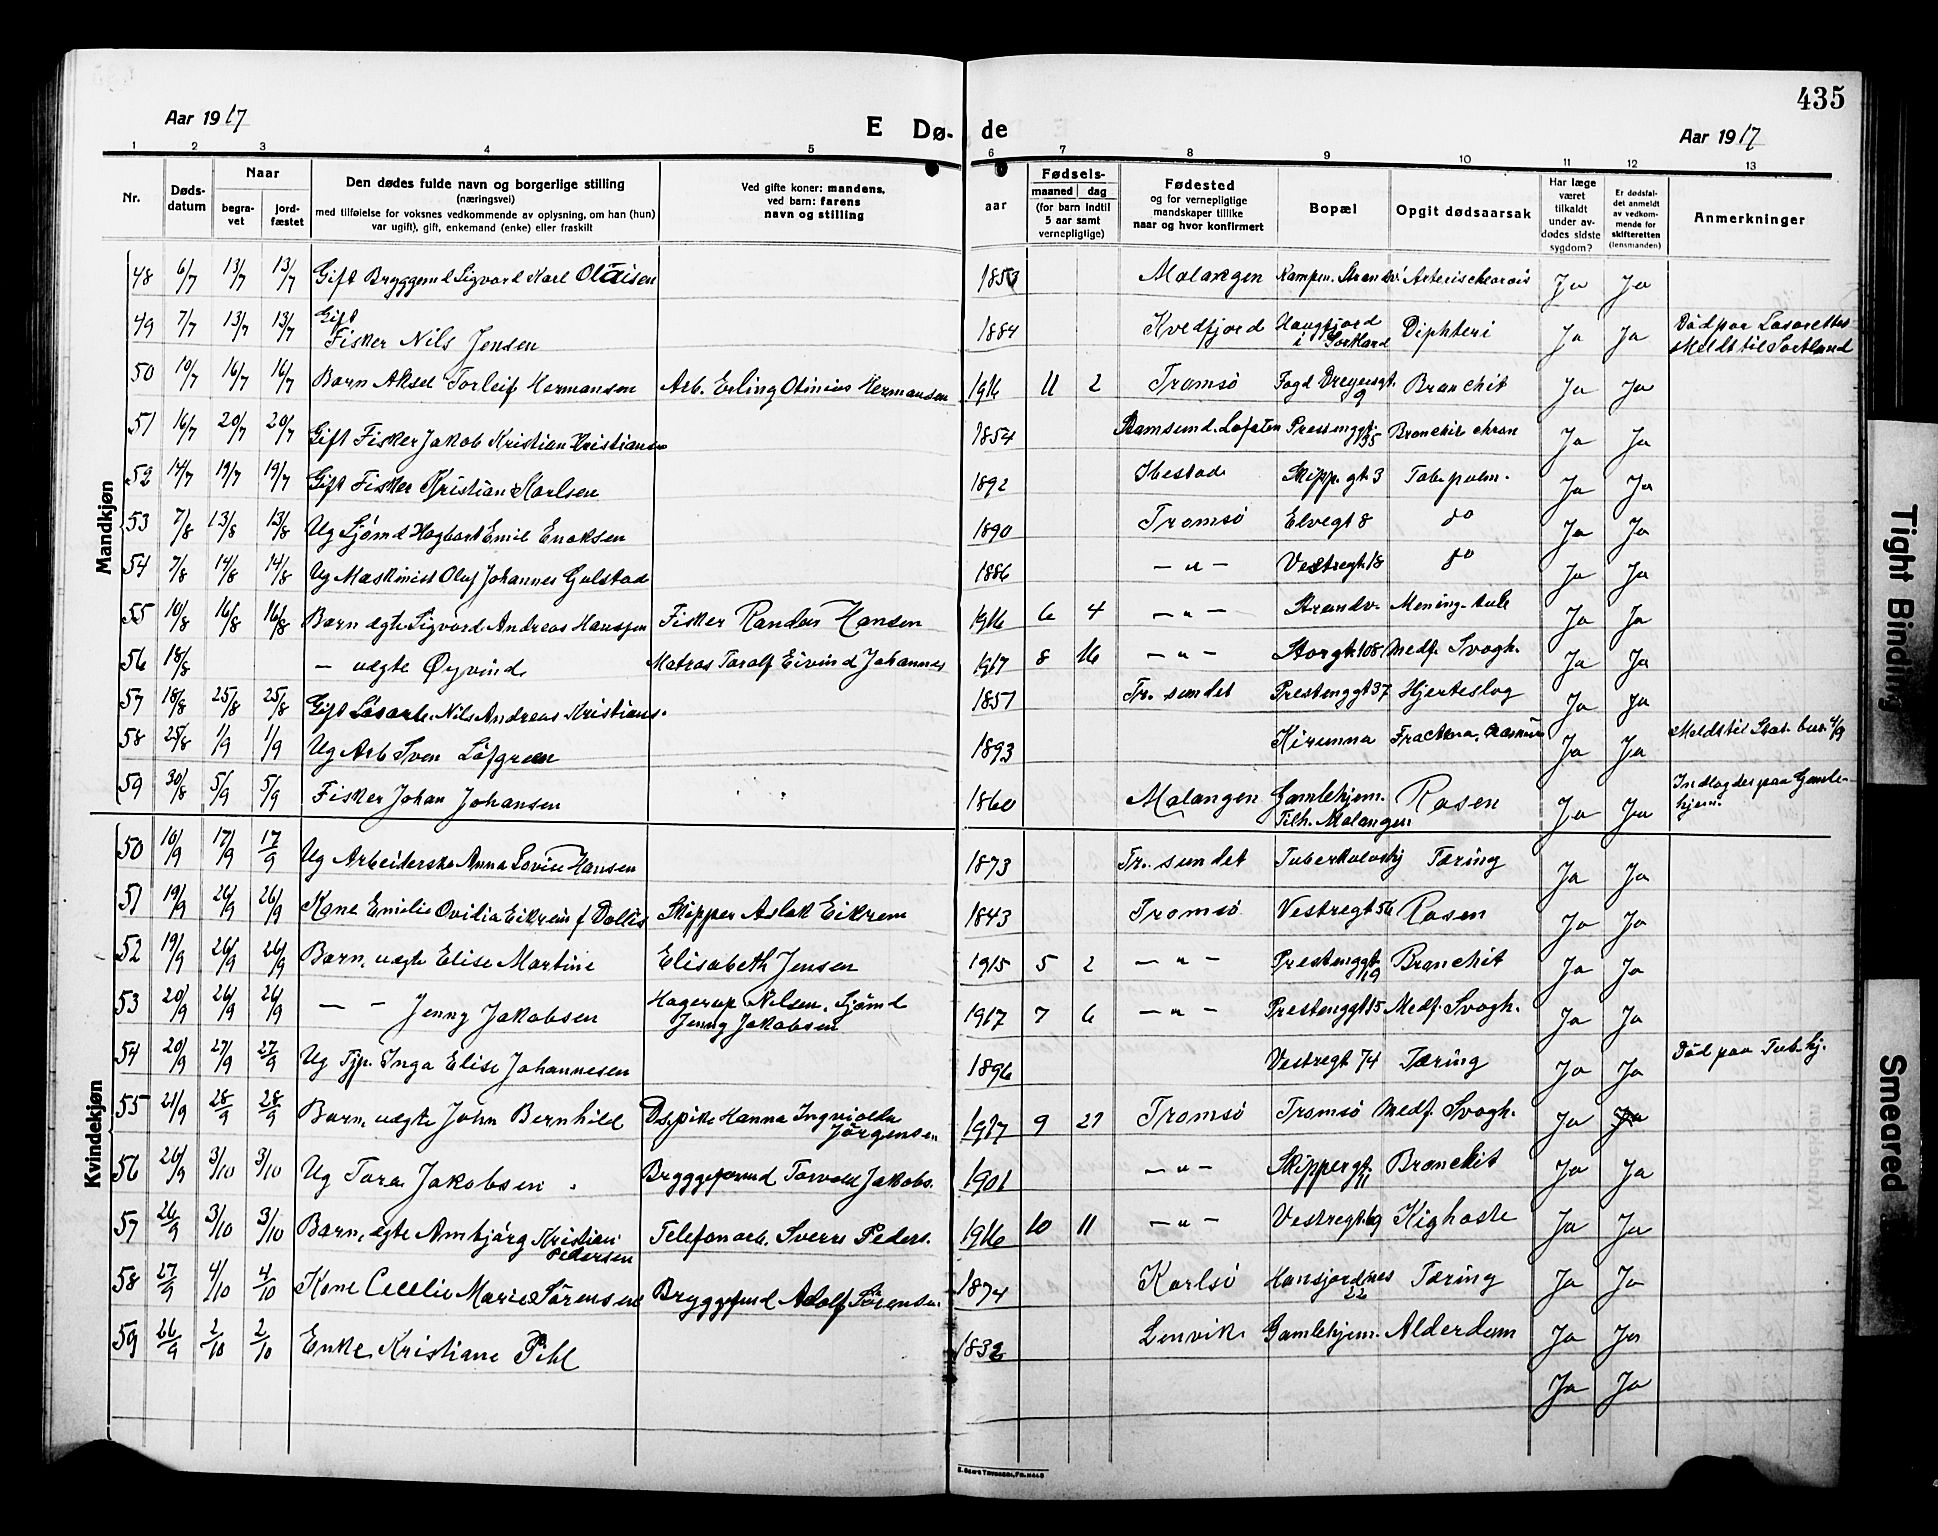 435
Aar 1917
E Dø-
de
Aar 1917
1 2 3 4 5 6 7 8 9 10 11 12 13
Nr.
Døds-
datum
Naar
begra-
vet
jord-
fæstet
Den dødes fulde navn og borgerlige stilling
(næringsvei)
med tilføielse for voksnes vedkommende av oplysning, om han (hun)
var ugift), gift, enkemand (enke) eller fraskilt
Ved gifte koner: mandens,
ved barn: farens
navn og stilling
aar
Fødsels-
maaned dag
(for barn indtil
5 aar samt
vernepligtige)
Fødested
og for vernepligtige
mandskaper tillike
naar og hvor konfirmert
Bopæl
Opgit dødsaarsak
Har læge
været
tilkaldt
under av-
dødes sidste
sygdom?
Er dødsfal-
det anmeldt
av vedkom-
mende for
skifteretten
(lensmanden)
Anmerkninger
Mandkjøn
48 6/7 13/7 13/7 Gift Bryggem d Sigvard Karl Olaisen 1853 Malangen Ja Ja
49 7/7 13/7 13/7 Gift
Fisker Nils Jensen 1884 Kvedfjord i Sortland Diphteri Ja Ja Død paa Lasarettet
Meldt til Sortland
50 10/7 16/7 16/7 Barn Aksel Torleif Hermansen Arb. Erling Otinius Hermansen 1916 11 2 Tromsö Fogd Dreyersgt. 9 Bronchit Ja Ja
51 16/7 20/7 20/7 Gift Fisker Jakob Kristian Kristiansen 1854 Ramsund. Lofoten Prestenggt. 135 Bronchit chron Ja Ja
52 14/7 19/7 19/7 Gift Fisker Kristian Karlsen 1892 Ibestad Skipp. gt. 3 Tub. pulm. Ja Ja
53 7/8 13/8 13/8 Ug Sjømd Hagbart Emil Enoksen 1890 Tromsö Elvegt 8 do Ja Ja
54 7/8 14/8 14/8 Ug Maskinist Olaf Johannes Golstad 1886 — " — Vestregt. 18 do Ja Ja
55 10/8 16/8 16/8 Barn ægte Sigvard Andreas Hansen Fisker Randor Hansen 1916 6 4 — " — Strandv. Mening. tub Ja Ja
56 18/8 — uægte Øyvind Matros Toralf Eivind Johannes 1917 8 16 — " — Storgt. 108 Medf. Svagh. Ja Ja
57 18/8 25/8 25/8 Gift Løsarb. Nils Andreas Kristians. 1857 Tr. sundet Prestenggt 37 Hjerteslag Ja Ja
58 25/8 1/9 1/9 Ug Arb Sven Löfgren 1893 Kirunna Fractura Ja Ja Meldt til 4/9
59 30/8 5/9 5/9 Fisker Johan Johansen 1860 Malangen Gamlehjem.
Tilh. Malangen Rosen Ja Ja Indlagdes paa Gamle-
hjem.
Kvindekjøn
50 10/9 17/9 17/9 Ug Arbeiderske Anna Lovise Hansen 1873 Tr. sundet Tuberkuloshj Tæring Ja Ja
51 19/9 26/9 26/9 Kone Emilie Ovilia Eikrem f Skipper Aslak Eikrem 1843 Tromsö Vestregt 56 Rosen Ja Ja
52 19/9 26/9 26/9 Barn, uægte Elise Martine Elisabeth Jensen 1915 5 2 — " — Prestenggt. 119 Bronchit Ja Ja
53 20/9 26/9 26/9 — — Jenny Jakobsen Hagerup Nilsen, Sjömd
Jenny Jakobsen 1917 7 6 — " — Prestenggt 15 Medf. Svagh. Ja Ja
54 20/9 27/9 27/9 Ug Tjp. Inga Elise Johannesen 1896 Vestregt 74 Tæring Ja Ja Död paa Tub. hj.
55 21/9 28/9 28/9 Barn, uægte John Bernhild Dspike Hanna Ingvalda
Jörgensen 1917 9 21 Tromsö Tromsö Medf. Svagh. Ja Ja
56 26/9 3/10 3/10 Ug Tora Jakobsen Bryggeformd Torvald Jakobs. 1901 — " — Skippergt. 11 Bronchit Ja Ja
57 26/9 3/10 3/10 Barn, ægte Ambjörg Kristian
Pedersen Telefonarb. Sverre Peders. 1916 10 11 — " — Vestregt. 69 Kighoste Ja Ja
58 27/9 4/10 4/10 Kone Cecelie Marie Sörensen Bryggefmd Adolf Sörensen 1874 Karlsö Hansjordnes 22 Tæring Ja Ja
59 26/9 2/10 2/10 Enke Kristiane Pihl 1832 Lenvik Gamlehjem. Alderdom Ja Ja
Ja Ja
Tight Binding
Smeared